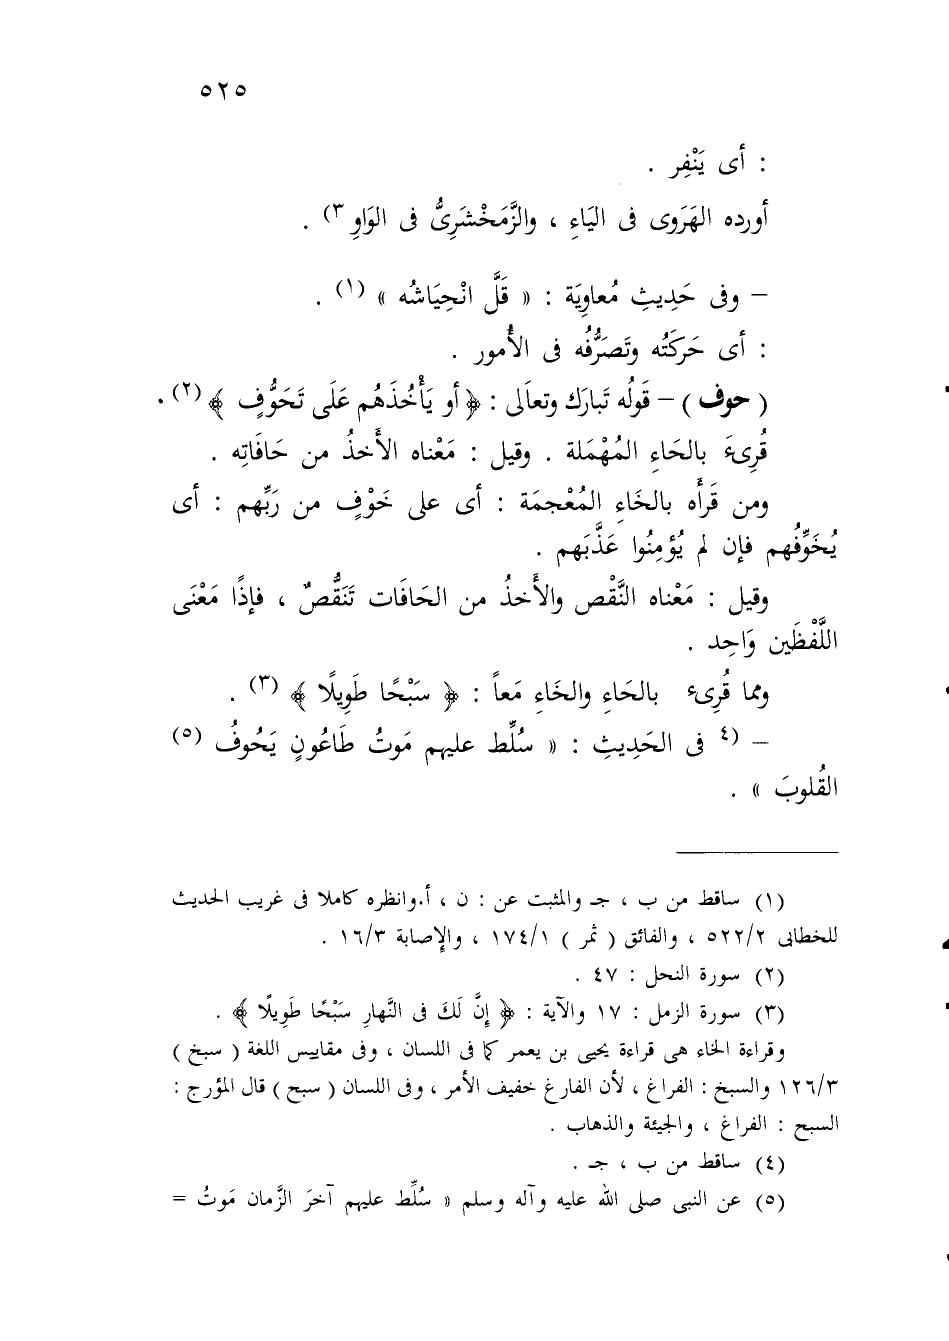 ٥٢٥
: أى يَنْفِر .
أورده الهَرَوى فى اليَاءِ ، والزَّمَخْشَرِىُّ فى الوَاوِ ٣) .
– وفى حَدِيثِ مُعاوِيَة : « قَلَّ انْحِيَاشُه » (١) .
: أى حَرَكَتُه وتَصَرُّفُه فى الأُمور .
( حوف ) – قَولُه تَبارَك وتعاَلى : ﴿ أو يَأْخُذَهُم عَلَى تَحَوُّفٍ ﴾ (٢) .
قُرِىءَ بالحَاءِ المُهْمَلة . وقيل : مَعْناه الأَخذُ من حَافَاتِه .
ومن قَرأَه بالخَاءِ المُعْجمَة : أى على خَوْفٍ من رَبِّهم : أى
يُخَوِّفُهم فإن لم يُؤمِنُوا عَذَّبَهم .
وقيل : مَعْناه النَّقْص والأَخذُ من الحَافَات تَنَقُّصٌ ، فإذًا مَعْنَى
اللَّفْظَين وَاحِد .
ومما قُرِىء بالحَاءِ والخَاءِ مَعاً : ﴿ سَبْحًا طَوِيلًا ﴾ (٣) .
– ٤) فى الحَدِيثِ : « سُلِّط عليهم مَوتُ طَاعُونٍ يَحُوفُ (٥)
القُلوبَ » .
(١) ساقط من ب ، جـ والمثبت عن : ن ، أ.وانظره كاملا فى غريب الحديث
للخطابى ٥٢٢/٢ ، والفائق ( ثمر ) ١٧٤/١ ، والإصابة ١٦/٣ .
(٢) سورة النحل : ٤٧ .
(٣) سورة الزمل : ١٧ والآية : ﴿ إنَّ لَكَ فى النَّهارِ سَبْحًا طَوِيلًا ﴾ .
وقراءة الخاء هى قراءة يحيى بن يعمر كما فى اللسان ، وفى مقاييس اللغة ( سبخ )
١٢٦/٣ والسبخ : الفراغ ، لأن الفارغ خفيف الأمر ، وفى اللسان ( سبح ) قال المؤرج :
السبح : الفراغ ، والجيئة والذهاب .
(٤) ساقط من ب ، جـ .
(٥) عن النبى صلى الله عليه وآله وسلم « سُلِّط عليهم آخرَ الزَّمان مَوتُ =